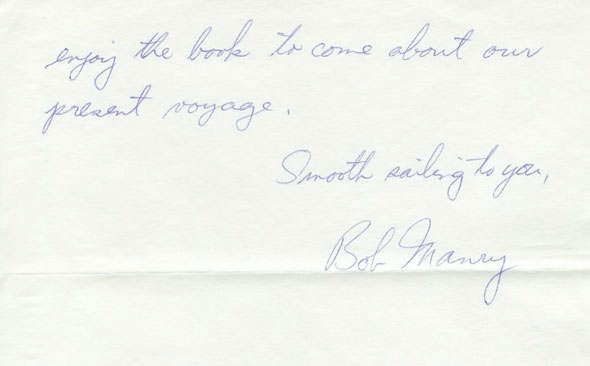 enjoy the book to come about our
present voyage.
Smooth sailing to you,
Bob Manry